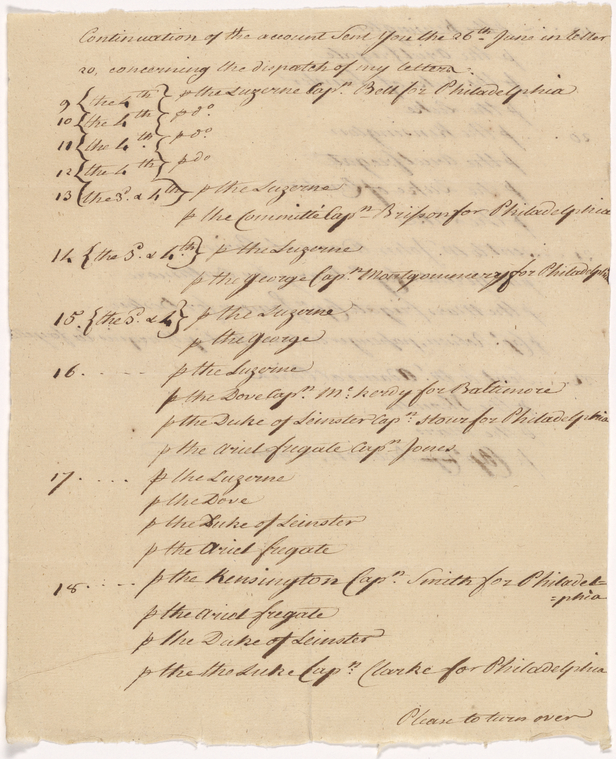 Continuation of the account Sent you the 26th June in letter
20, concerning the dispatch of my letters.
9 {the 4th} p the Luzerne Capn. Bell for Philadelphia
10 {the 4th} p do
11 {the 4th} p do
12 {the 4th} p do
13 {the 3d. & 4th} p the Luzerne
p the Committé Capn Brisson for Philadelphia
14 {the 3d. & 4th} p the Luzerne
p the George Capn Montgommery for Philadelphia
15. {the 3d. & 4} p the Luzerne
p the George
16 . . . . . p the Luzerne
p the Dove Capn. Mc. kerdy for Baltimore
p the Duke of Leinster Capn. Stour for Philadelphia
p the Ariel fregate Capn Jones
17 . . . . p the Luzerne
p the Dove
p the Duke of Leinster
p the Ariel fregate
18 . . . . p the Kensington Capn. Smith for Philadel=
=phia
p the Ariel fregate
p the Duke of Leinster
p the the Luke Capn. Clarke for Philadelphia
Please to turn over